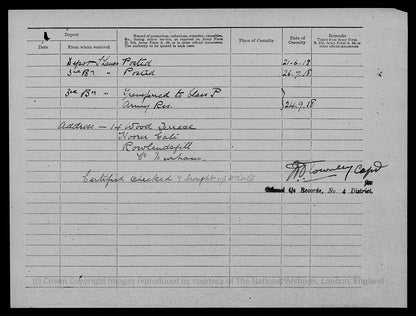 Report
Record of promotions, reductions, transfers, casualties, etc., during active service, as reported on Army Form B. 213, Army Form A. 36, or in other official documents. The authority to be quoted in each case.
Place of Casualty
Date of Casualty
Remarks
Taken from Army Form B. 213, Army Form A. 36, or other official documents.
Date
From whom received
Depot Posted 21.6.18
3rd Bn " Posted 26.7.18
3rd Bn " Transferred to Class P
Army Res. 24.9.18
Address - 14 Wood Terrace
Rowlandsgill
Co Durham.
Certified checked & brought up to date
Capt
for Colonel i/c Records, No. 4 District.
(c) Crown Copyright Images reproduced by courtesy of The National Archives, London, England